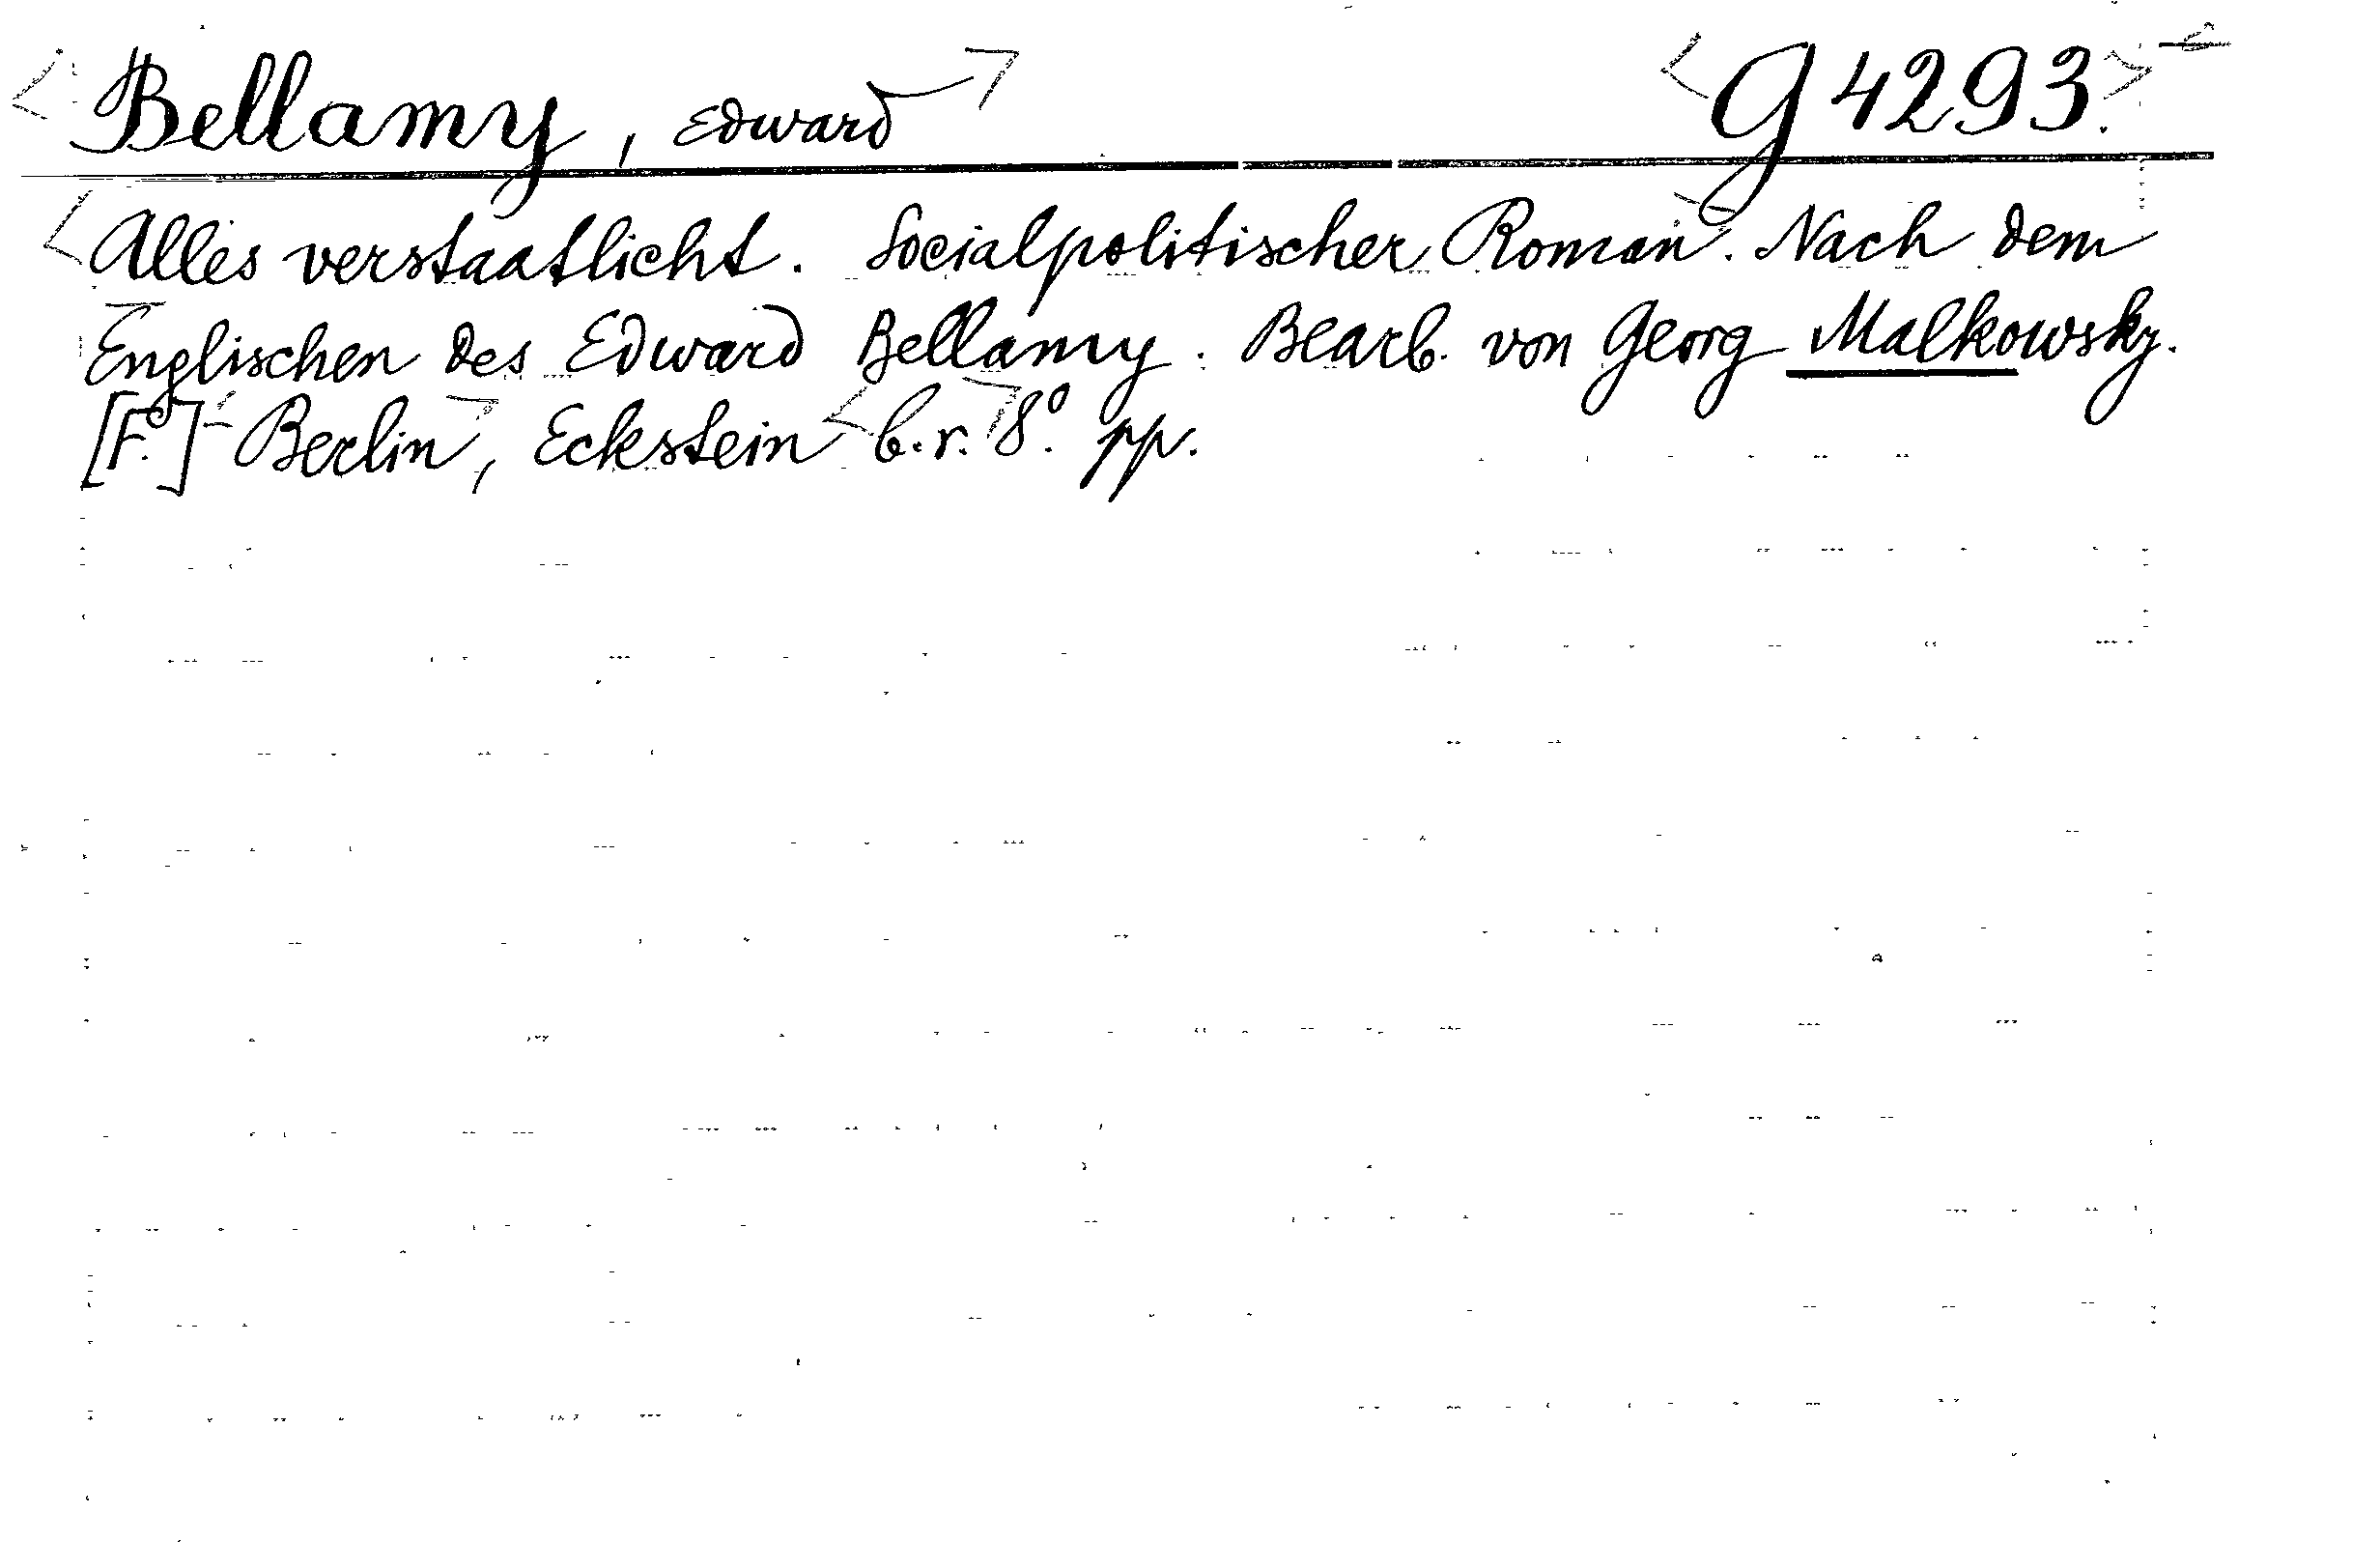 Bellamy, Edward G 4293.
Alles verstaatlicht. Socialpolitischer Roman. Nach dem
Englischen des Edward Bellamy. Bearb. von Georg Malkowsky.
[F.] Berlin, Eckstein b.r. 8°. pp.